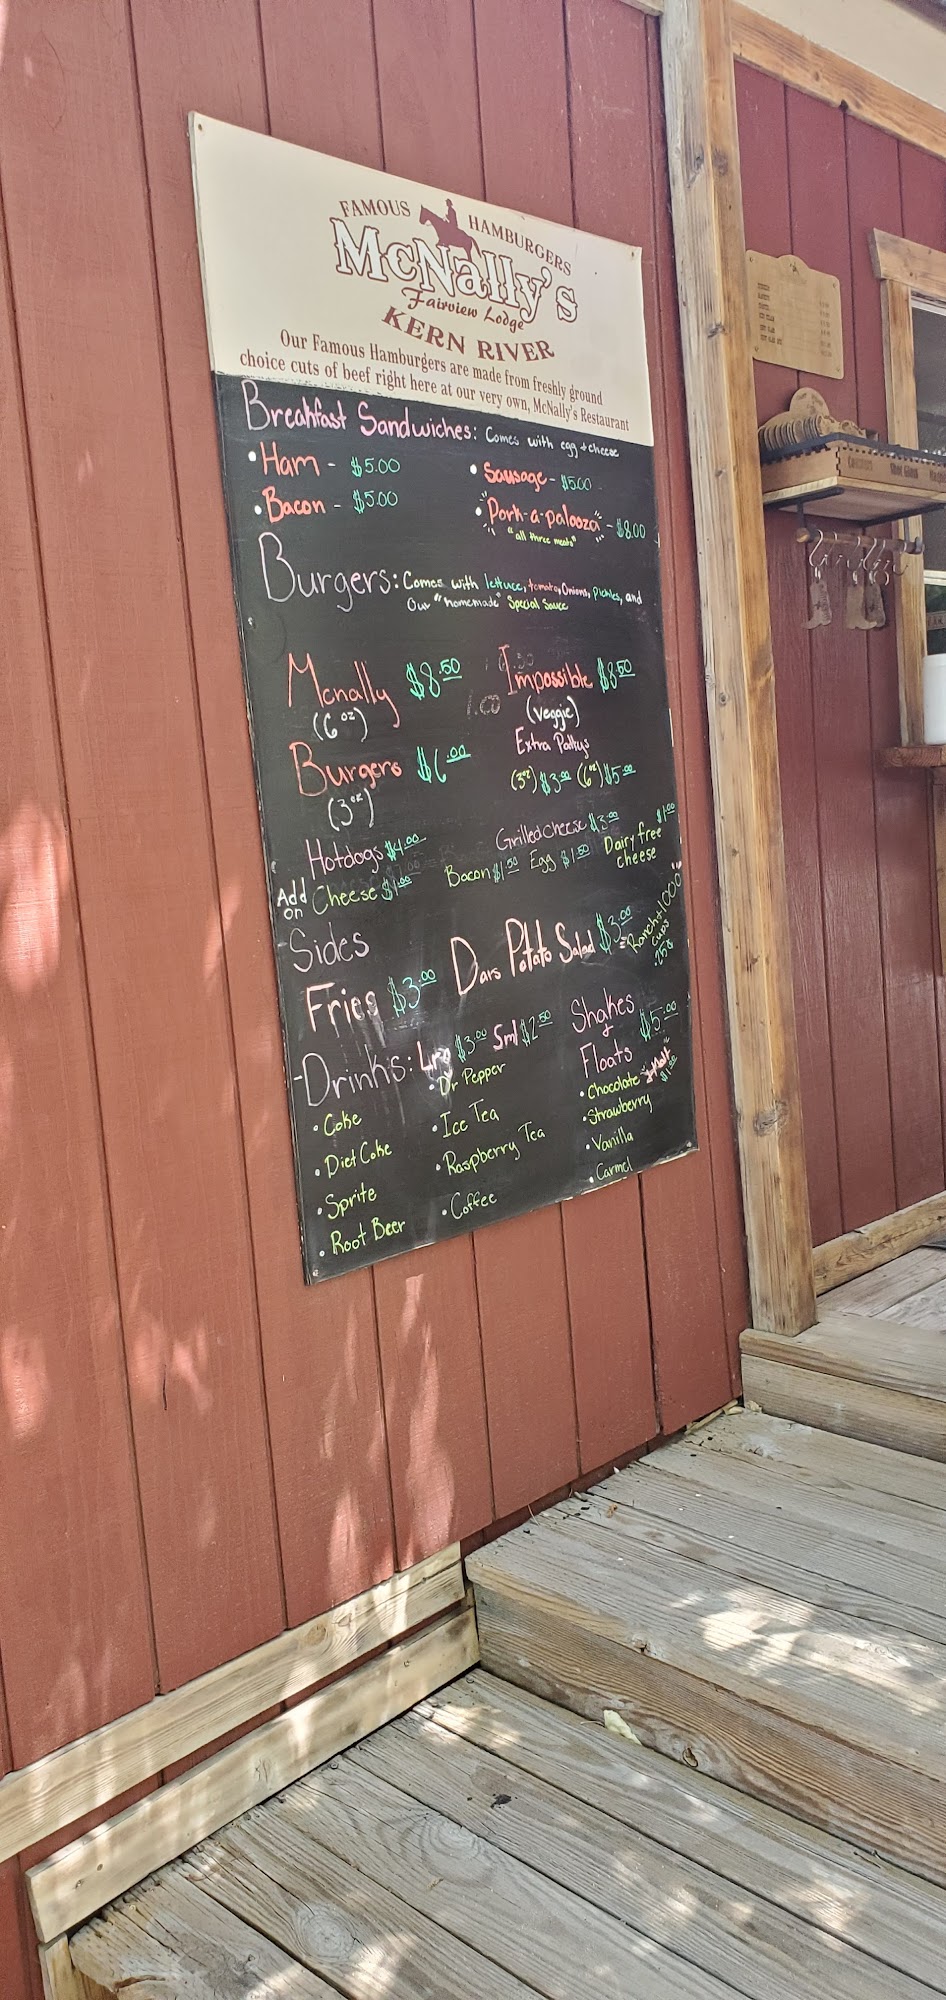 FAMOUS HAMBURGERS
McNally's
Fairview Lodge
KERN RIVER
Our Famous Hamburgers are made from freshly ground
choice cuts of beef right here at our very own, McNally's Restaurant
Breakfast Sandwiches: Comes with egg + cheese
• Ham - $5.00
• Sausage - $5.00
• Bacon - $5.00
• "Pork-a-palooza" - $8.00
"all three meats"
Burgers: Comes with lettuce, tomato, Onions, Pickles, and
Our "homemade" Special Sauce
Mcnally $8.50
(6oz)
Impossible $8.50
(Veggie)
Burgers $6.00
(3oz)
Extra Pattys
(3oz) $3.00 (6oz) $5.00
Hotdogs $4.00
Grilled cheese $3.00
Add on Cheese $1.00
Bacon $1.50 Egg $1.50 Dairy free cheese $1.00
Sides
Fries $3.00 Dars Potato Salad $3.00
Ranch + 1000
cups
.25¢
Drinks: Lrg $3.00 Sml $2.50
• Coke
• Diet Coke
• Sprite
• Root Beer
• Dr Pepper
• Ice Tea
• Raspberry Tea
• Coffee
Shakes
+
Floats $5.00
• Chocolate
• Strawberry
• Vanilla
• Carmel
"+Malt"
$1.00